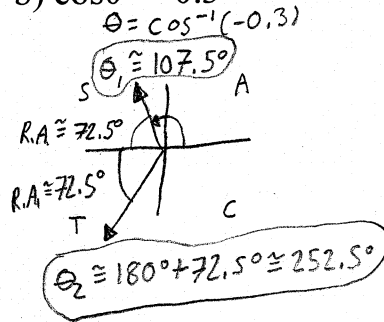 θ = cos⁻¹(-0.3)
θ₁ ≅ 107.5°
S A
R.A. ≅ 72.5°
R.A. ≅ 72.5°
T C
θ₂ ≅ 180° + 72.5° ≅ 252.5°